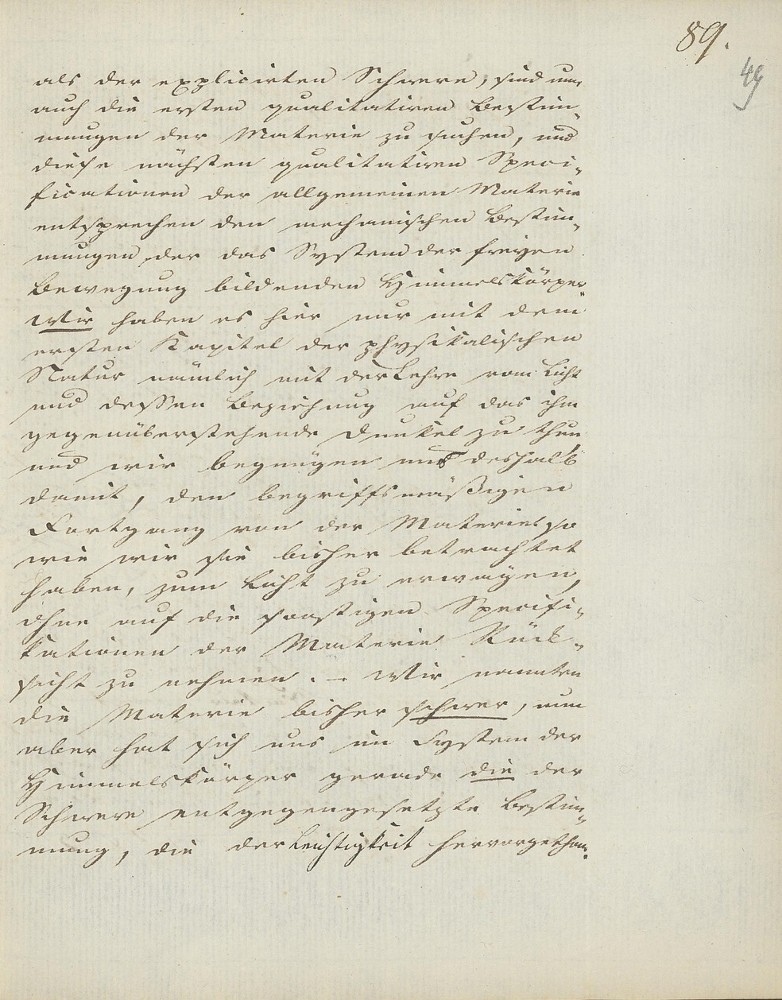 89.
49
als der explicirten Schwere, sind nun
auch die ersten qualitativen Bestim„
mungen der Materie zu suchen, und
diese nächsten qualitativen Speci„
ficationen der allgemeinen Materie
entsprechen den mechanischen Bestim„
mungen der das System der freyen
Bewegung bildenden Himmelskörper
Wir haben es hier nur mit dem
ersten Kapitel der physikalischen
Natur nämlich mit der Lehre vom Licht
und dessen Beziehung auf das ihm
gegenüberstehende Dunkel zu thun
und wir begnügen uns deshalb
damit, den begriffsmäßigen
Fortgang von der Materie so
wie wir sie bisher betrachtet
haben, zum Licht zu erwägen,
ohne auf die sonstigen Specifi„
kationen der Materie Rück„
sicht zu nehmen. – Wir nannten
die Materie bisher schwer, nun
aber hat sich uns im System der
Himmelskörper gerade die der
Schwere entgegengesetzte Bestim„
mung, die der Leichtigkeit hervorgethan.